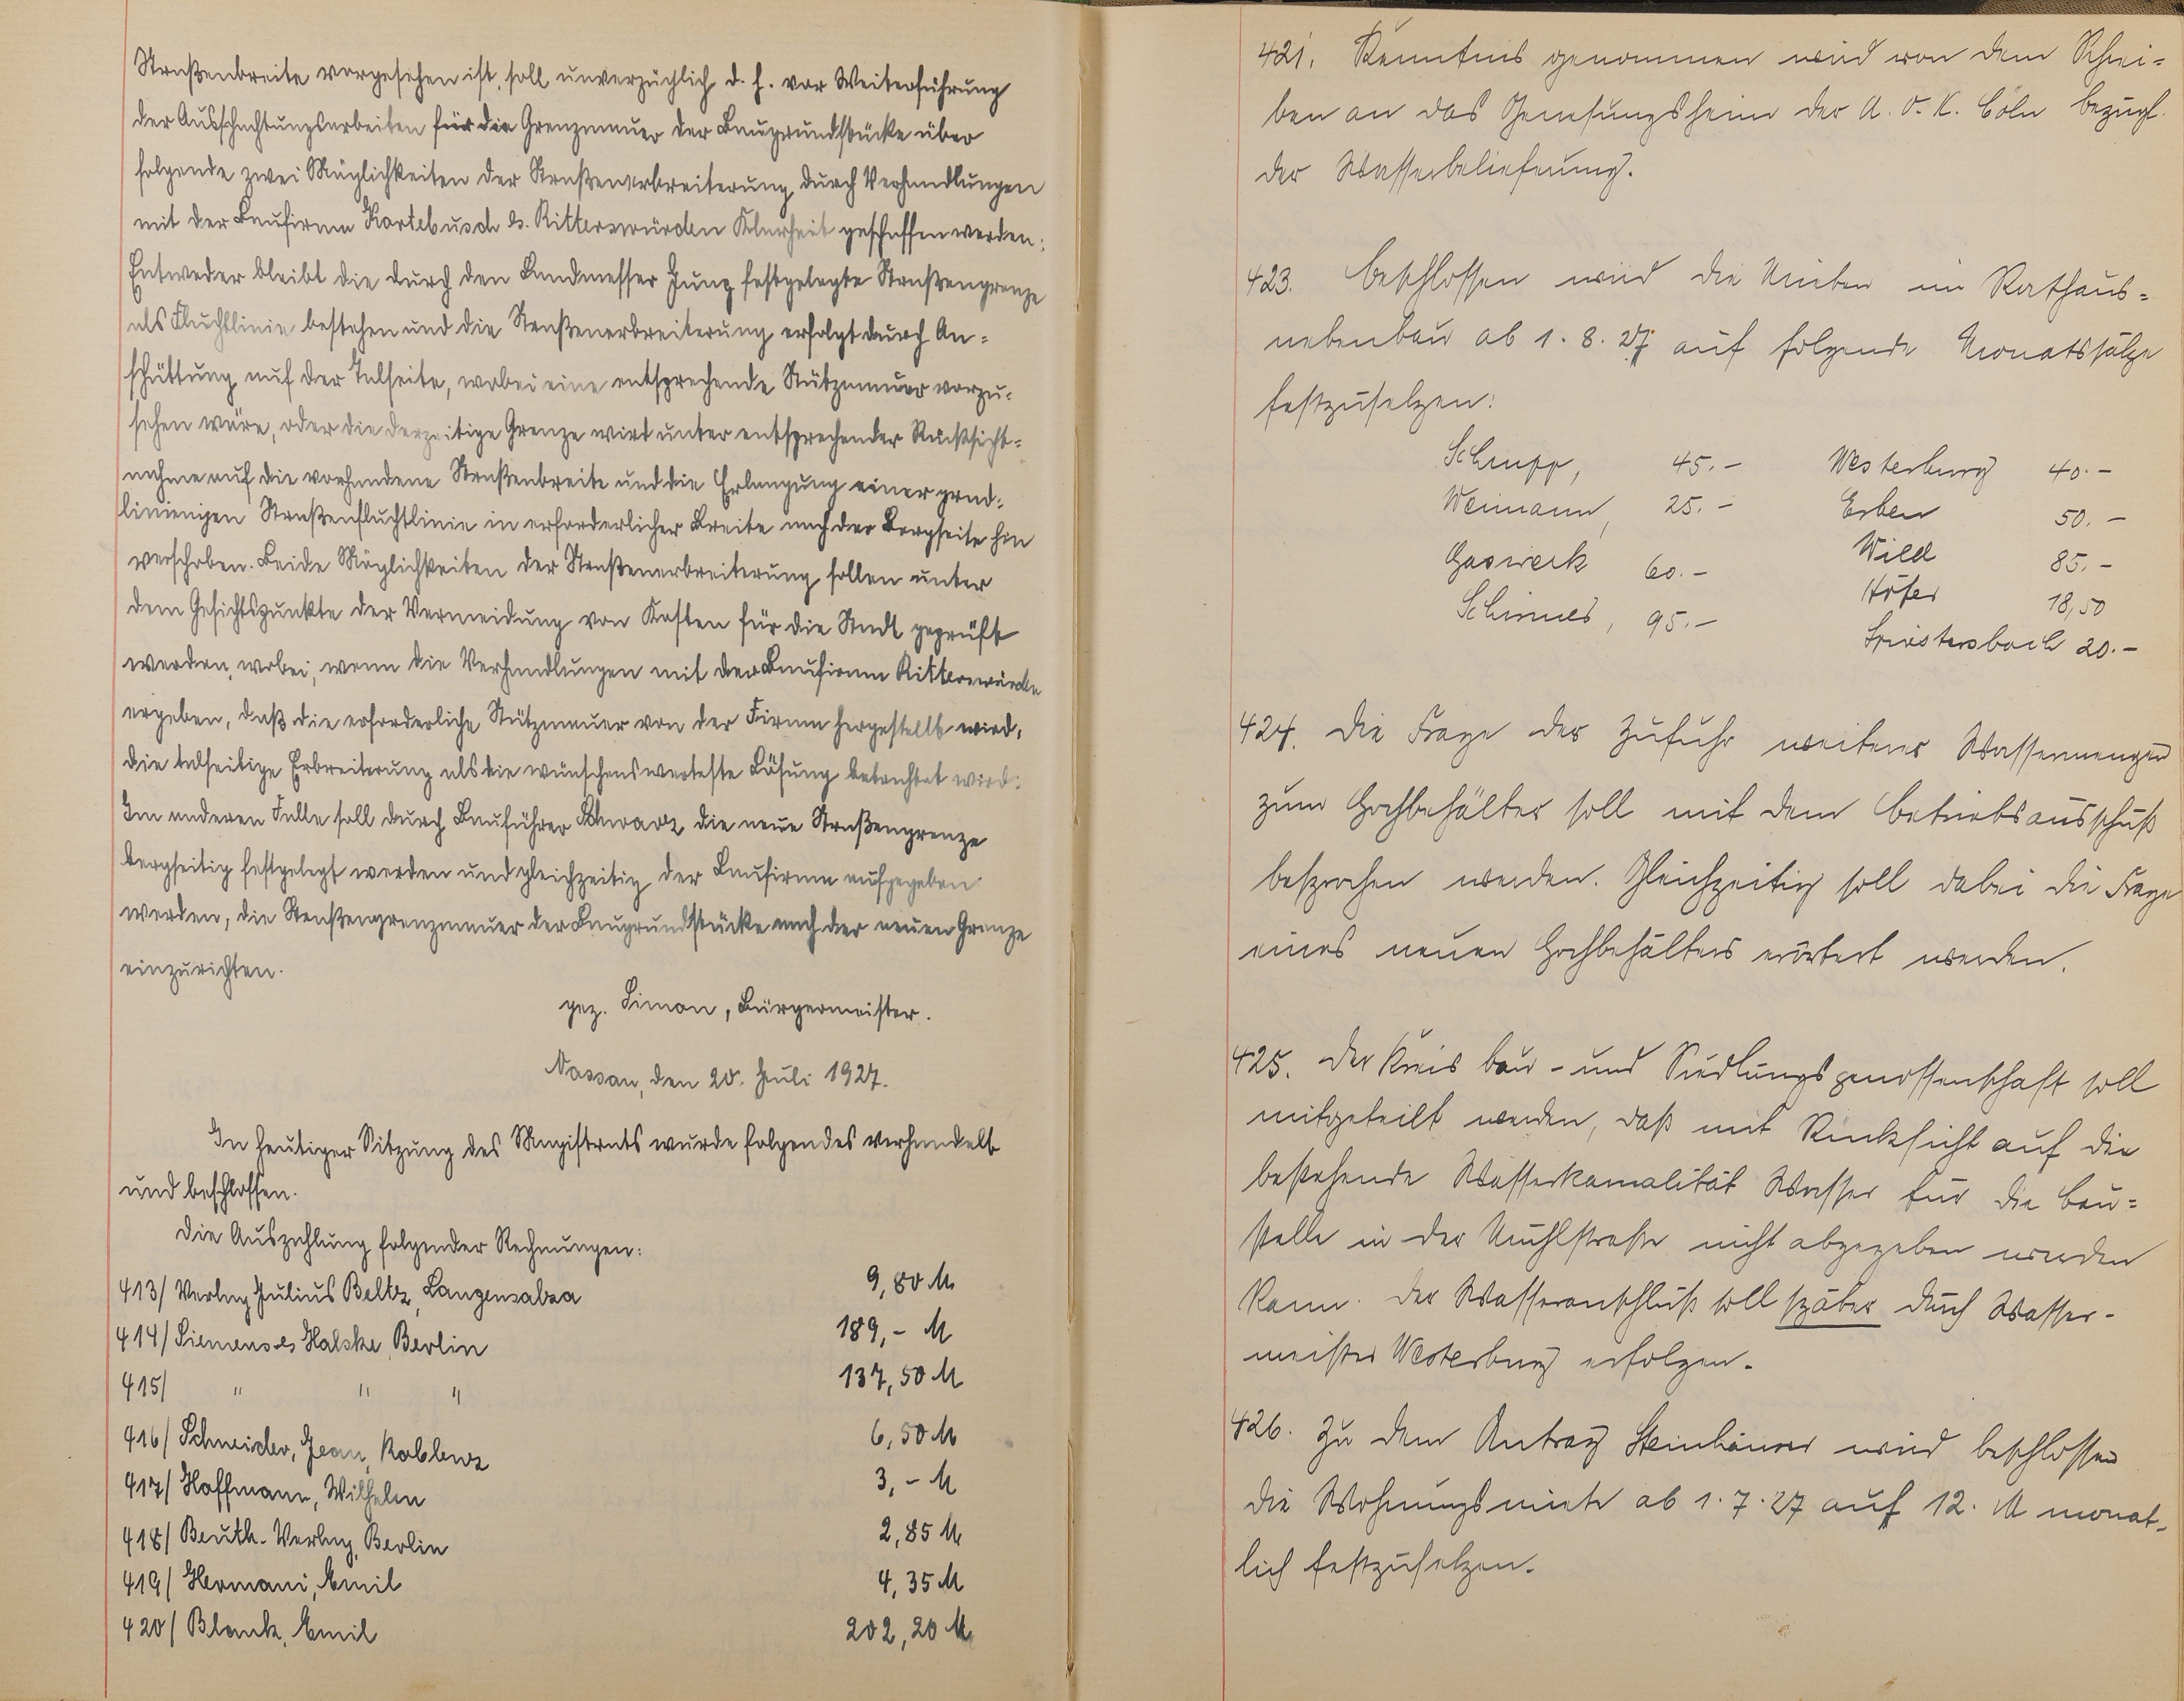 Straßenbreite vorgesehen ist, soll unverzüglich d. h. vor Weiterführung
der Ausschachtungsarbeiten für die Grenzmauer der Baugrundstücke über
folgende zwei Möglichkeiten der Straßenverbreiterung durch Verhandlungen
mit der Baufirma Kortebusch & Ritterswürden Klarheit geschaffen werden:
Entweder bleibt die durch den Landmesser Jung festgelegte Straßengrenze
als Fluchtlinie bestehen und die Straßenerbreiterung erfolgt durch An=
schüttung auf der Talseite, wobei eine entsprechende Stützmauer vorzu=
sehen wäre, oder die derzeitige Grenze wird unter entsprechender Rücksicht=
nahme auf die vorhandene Straßenbreite und die Erlangung einer grad=
linienigen Straßenfluchtlinie in erforderlicher Breite nach der Bergseite hin
verschoben. Beide Möglichkeiten der Straßenerbreiterung sollen unter
dem Gesichtspunkte der Vermeidung von Kosten für die Stadt geprüft
werden, wobei, wenn die Verhandlungen mit der Baufirma Ritterswürden
ergeben, daß die erforderliche Stützmauer von der Firma hergestellt wird,
die talseitige Erbreiterung als die wünschenswerteste Lösung betrachtet wird.
Im anderen Falle soll durch Bauführer Schwarz die neue Straßengrenze
bergseitig festgelegt werden und gleichzeitig der Baufirma aufgegeben
werden, die Straßengrenzmauer der Baugrundstücke nach der neuen Grenze
einzurichten.
gez. Simon, Bürgermeister.
Nassau, den 20. Juli 1927.
In heutiger Sitzung des Magistrats wurde folgendes verhandelt
und beschlossen.
Die Auszahlung folgender Rechnungen:
413/ Verlag Julius Beltz, Langensalza 9,80 M
414/ Siemens & Halske, Berlin 189,- M
415/ " " " 137,50 M
416/ Schneider, Jean, Koblenz 6,50 M
417/ Hoffmann, Wilhelm 3,- M
418/ Beuth-Verlag, Berlin 2,85 M
419/ Hermani, Emil 4,35 M
420/ Blank, Emil 202,20 M
421. Kenntnis genommen wird von dem Schrei=
ben an das Genesungsheim der A. O. K. Cöln bezügl.
der Wasserbelieferung.
423. Beschlossen wird die Mieten im Rathaus=
nebenbau ab 1. 8. 27 auf folgende Monatssätze
festzusetzen:
Schrupp, 45.- Westerburg 40.-
Weimann, 25.- Erben 50.-
Gaswerk 60.- Wild 85.-
Schirmes, 95.- Höfer 18,50
20.-
424. Die Frage der Zufuhr weiterer Wassermengen
zum Hochbehälter soll mit dem Betriebsausschuß
besprochen werden. Gleichzeitig soll dabei die Frage
eines neuen Hochbehälters erörtert werden.
425. Der Kreis bau- und Siedlungsgenossenschaft soll
mitgeteilt werden, daß mit Rücksicht auf die
bestehende Wasserkamalität Wasser für die Bau=
stelle in der Mühlstraße nicht abgegeben werden
kann. Der Wasseranschluß soll später durch Wasser-
meister Westerburg erfolgen.
426. Zu dem Antrag Steinhäuser wird beschlossen
die Wohnungsmiete ab 1. 7. 27 auf 12. M monat-
lich festzusetzen.